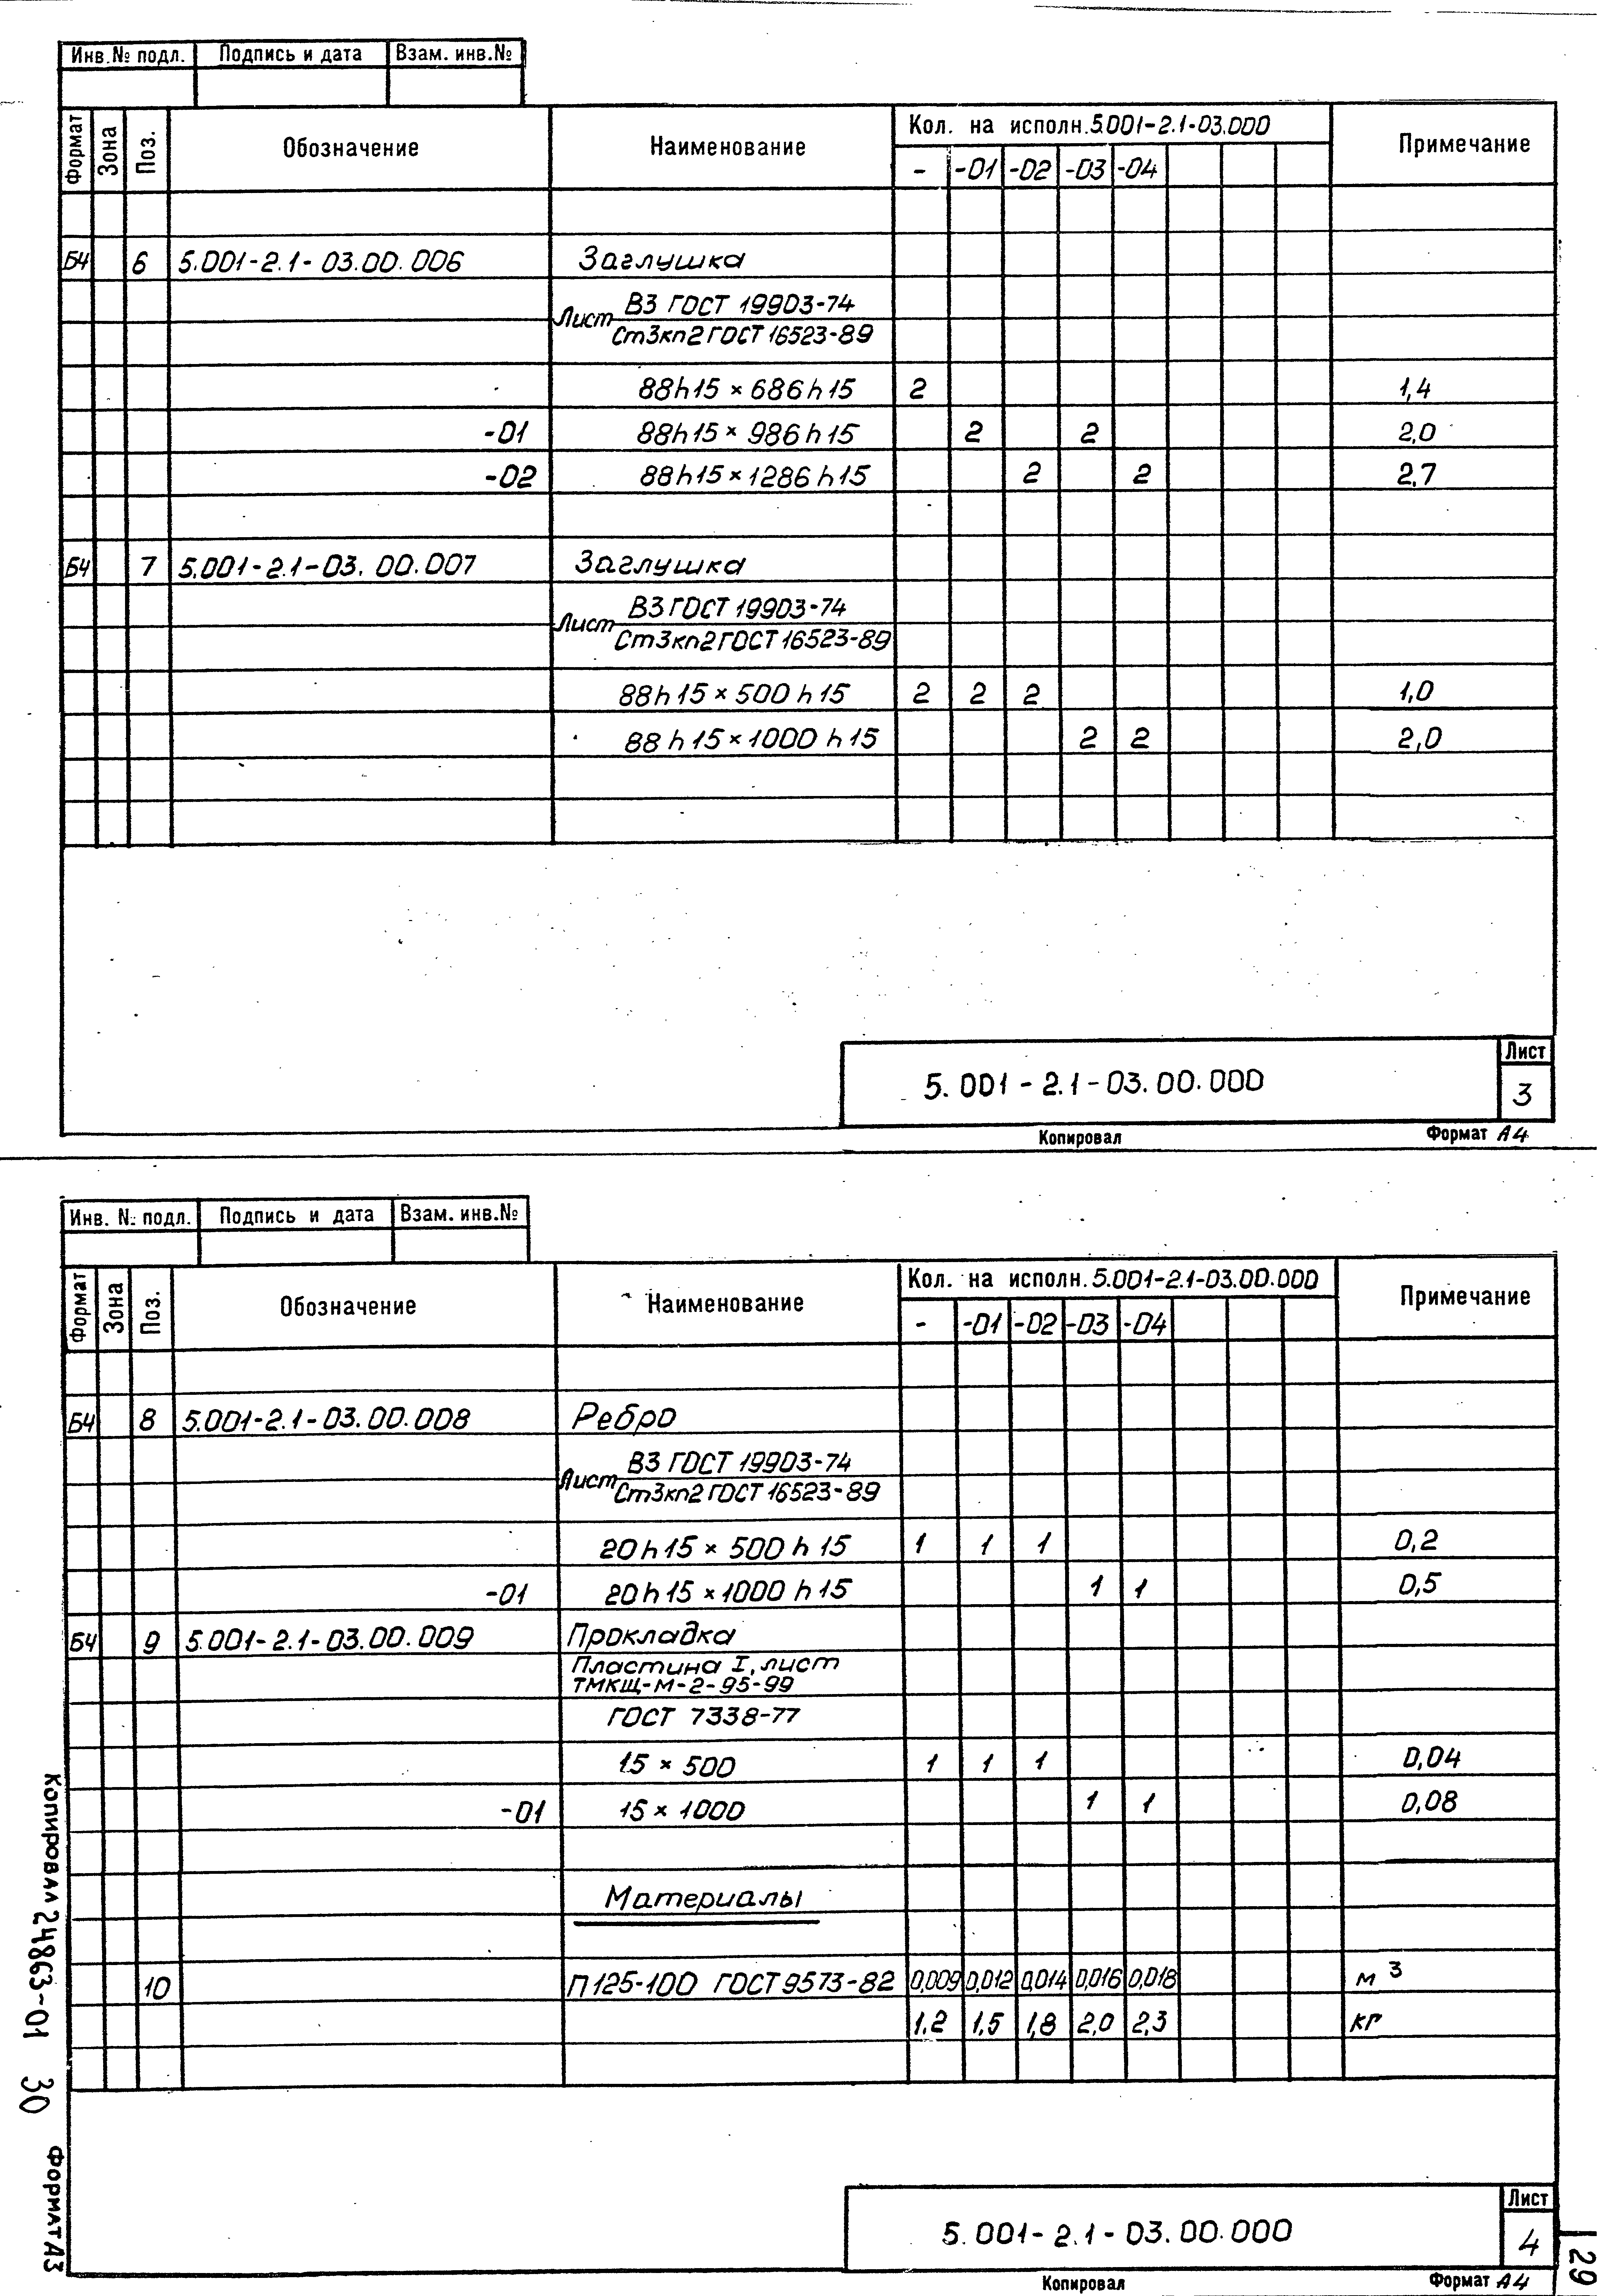 Инв.№ подл. Подпись и дата Взам. инв.№
Формат Зона Поз. Обозначение Наименование Кол. на исполн.5.001-2.1-03.000 Примечание
- -01 -02 -03 -04
Б4 6 5.001-2.1-03.00.006 Заглушка
Лист В3 ГОСТ 19903-74
Ст3кп2 ГОСТ 16523-89
88h15 × 686h15 2 1,4
-01 88h15 × 986h15 2 2 2,0
-02 88h15 × 1286h15 2 2 2,7
Б4 7 5.001-2.1-03.00.007 Заглушка
Лист В3 ГОСТ 19903-74
Ст3кп2 ГОСТ 16523-89
88h15 × 500h15 2 2 2 1,0
88h15 × 1000h15 2 2 2,0
5.001-2.1-03.00.000 Лист
3
Копировал Формат А4
Инв. № подл. Подпись и дата Взам. инв.№
Формат Зона Поз. Обозначение Наименование Кол. на исполн.5.001-2.1-03.00.000 Примечание
- -01 -02 -03 -04
Б4 8 5.001-2.1-03.00.008 Ребро
Лист В3 ГОСТ 19903-74
Ст3кп2 ГОСТ 16523-89
20h15 × 500h15 1 1 1 0,2
-01 20h15 × 1000h15 1 1 0,5
Б4 9 5.001-2.1-03.00.009 Прокладка
Пластина I, лист
ТМКЩ-М-2-95-99
ГОСТ 7338-77
15 × 500 1 1 1 0,04
-01 15 × 1000 1 1 0,08
Материалы
10 П125-100 ГОСТ 9573-82 0,009 0,012 0,014 0,016 0,018 м3
1,2 1,5 1,8 2,0 2,3 кг
5.001-2.1-03.00.000 Лист
4
Копировал Формат А4
Копировал 24863-01 30 Формат А3
29